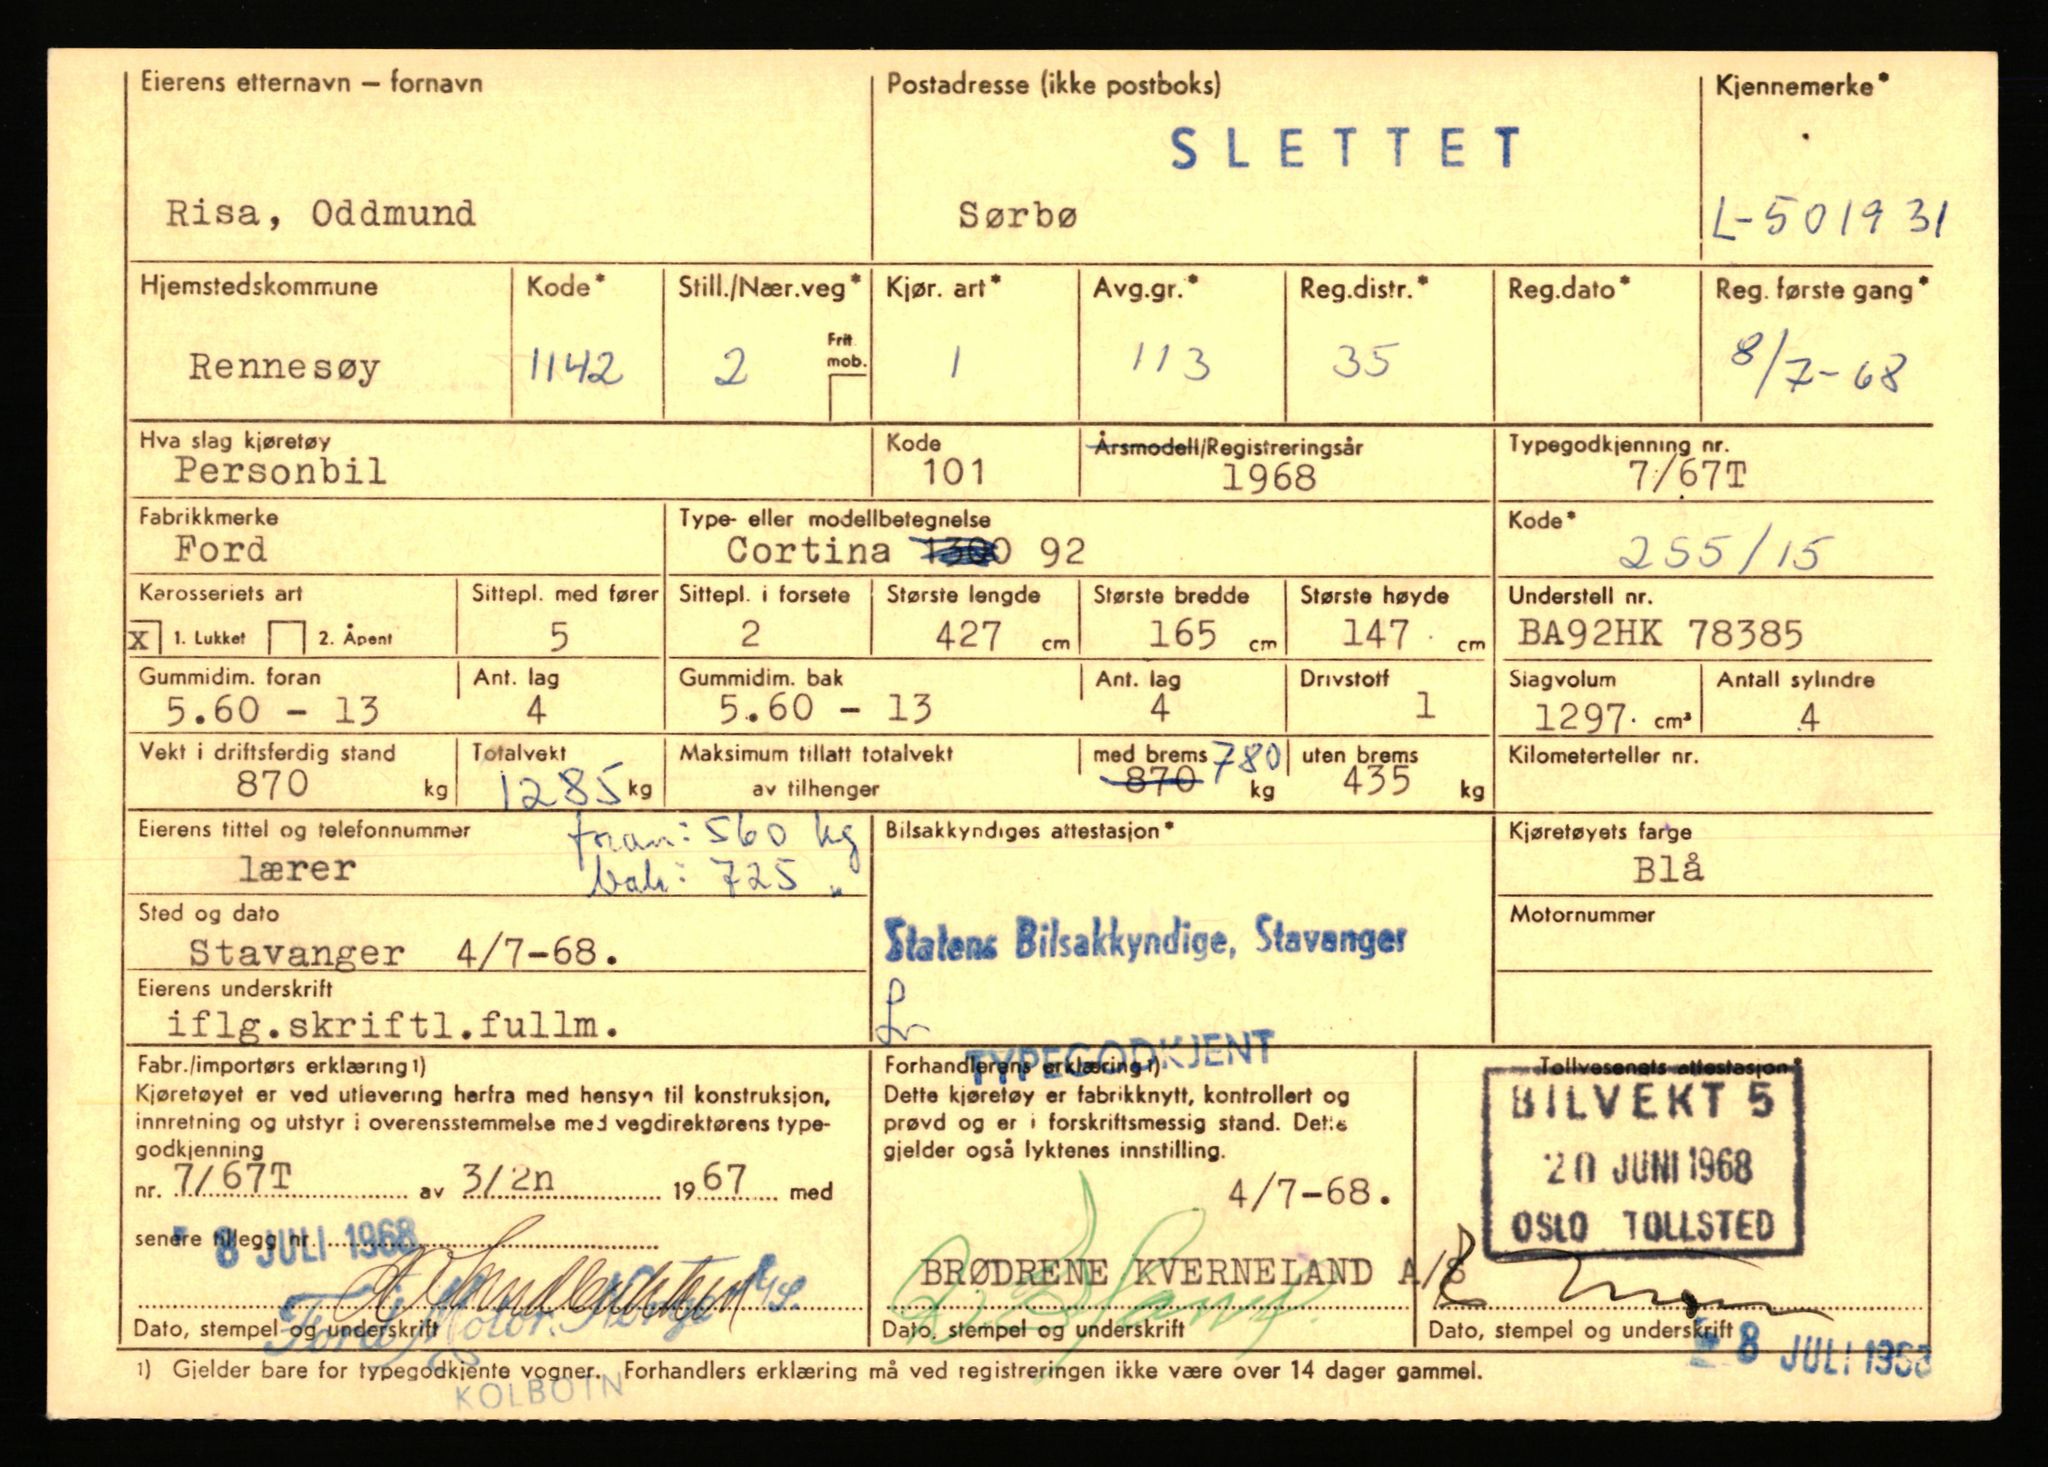 Eierens etternavn – fornavn
Postadresse (ikke postboks)
Kjennemerke*
SLETTET
Risa, Oddmund
Sørbø
L-501931
Hjemstedskommune
Kode*
Still./Nær.veg*
Kjør. art*
Avg.gr.*
Reg.distr.*
Reg.dato*
Reg. første gang*
Frit. mob.
Rennesøy
1142
2
1
113
35
8/7-68
Hva slag kjøretøy
Kode
Årsmodell/Registreringsår
Typegodkjenning nr.
Personbil
101
1968
7/67T
Fabrikkmerke
Type- eller modellbetegnelse
Kode*
Ford
Cortina 1300 92
255/15
Karosseriets art
Sittepl. med fører
Sittepl. i forsete
Største lengde
Største bredde
Største høyde
Understell nr.
X 1. Lukket
2. Åpent
5
2
427 cm
165 cm
147 cm
BA92HK 78385
Gummidim. foran
Ant. lag
Gummidim. bak
Ant. lag
Drivstoff
Slagvolum
Antall sylindre
5.60 - 13
4
5.60 - 13
4
1
1297 cm³
4
Vekt i driftsferdig stand
Totalvekt
Maksimum tillatt totalvekt
med brems 780
uten brems
Kilometerteller nr.
870 kg
1285 kg
av tilhenger
870 kg
435 kg
Eierens tittel og telefonnummer
foran: 560 kg
Bilsakkyndiges attestasjon*
Kjøretøyets farge
lærer
bak: 725 "
Blå
Sted og dato
Motornummer
Stavanger 4/7-68.
Statens Bilsakkyndige, Stavanger
Eierens underskrift
iflg.skriftl.fullm.
TYPEGODKJENT
Fabr./importørs erklæring 1)
Forhandlerens erklæring 1)
Tollvesenets attestasjon*
Kjøretøyet er ved utlevering herfra med hensyn til konstruksjon,
innretning og utstyr i overensstemmelse med vegdirektørens type-
godkjenning
nr. 7/67T av 3/2n 1967 med
senere tillegg nr.
8 JULI 1968
Dette kjøretøy er fabrikknytt, kontrollert og
prøvd og er i forskriftsmessig stand. Dette
gjelder også lyktenes innstilling.
4/7-68.
BRØDRENE KVERNELAND A/S
BILVEKT 5
20 JUNI 1968
OSLO TOLLSTED
Ford Motor Norge A/S.
Dato, stempel og underskrift
Dato, stempel og underskrift
Dato, stempel og underskrift
8 JULI 1968
1) Gjelder bare for typegodkjente vogner. Forhandlers erklæring må ved registreringen ikke være over 14 dager gammel.
KOLBOTN